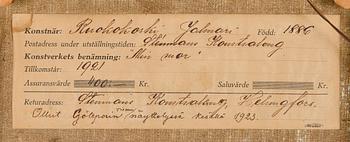 Konstnär: Ruokokoski, Jalmari Född: 1886
Postadress under utställningstiden: Stenmans Konstsalong
Konstverkets benämning: "Min mor"
Tillkomstår: 1921
Assuransvärde 400:- Kr. Saluvärde Kr.
Returadress: Stenmans Konstsalong, Helsingfors.
Ollut Göteporin näyttelyssä kesällä 1923.